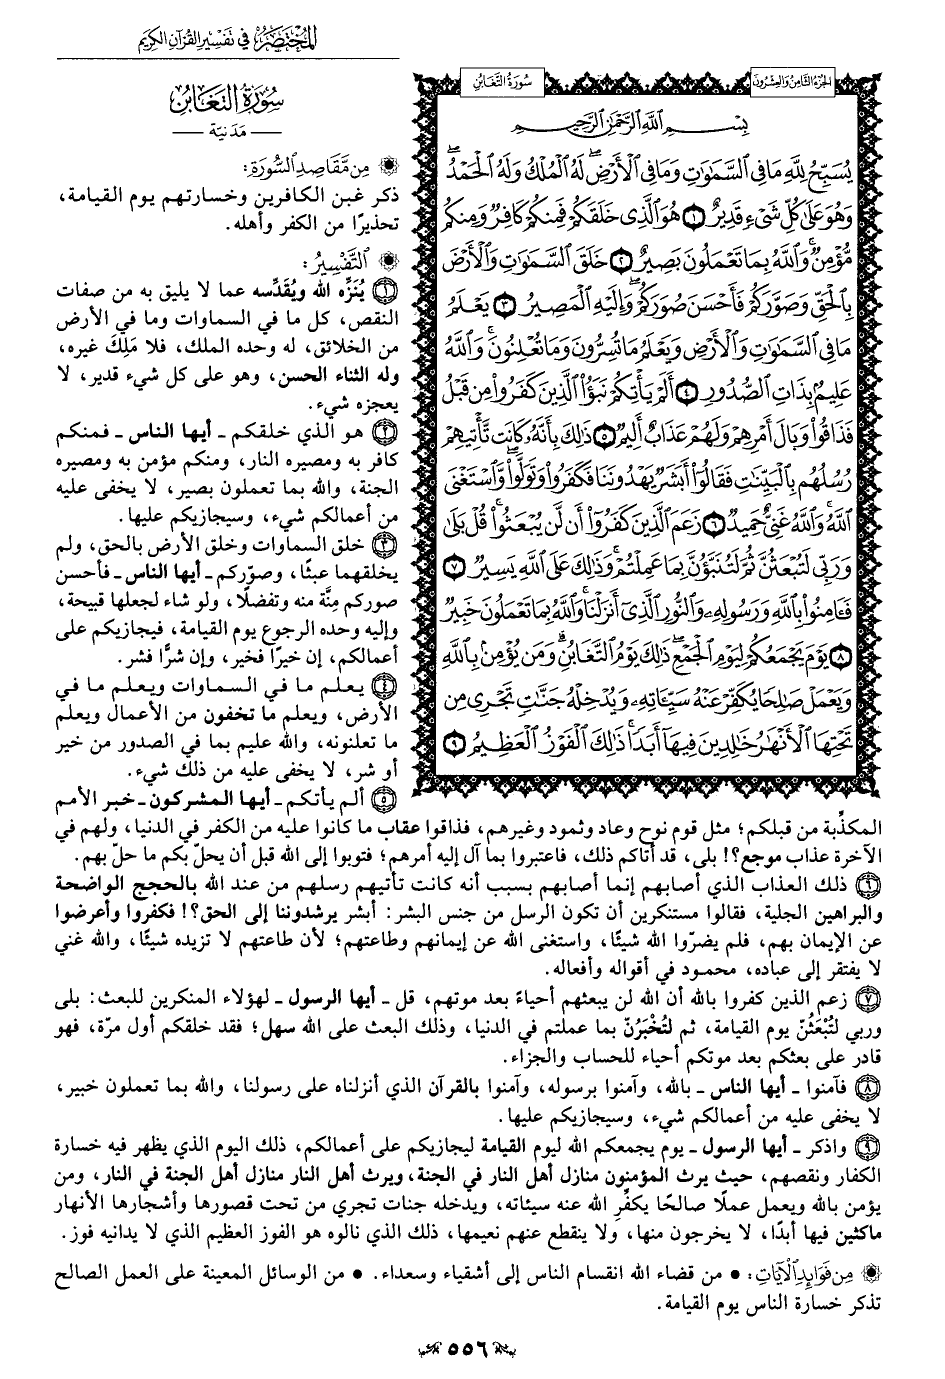 المختصر في تفسير القرآن الكريم
الجزء الثامن والعشرون
سورة التغابن
بِسْمِ اللَّهِ الرَّحْمَٰنِ الرَّحِيمِ
يُسَبِّحُ لِلَّهِ مَا فِي السَّمَاوَاتِ وَمَا فِي الْأَرْضِ لَهُ الْمُلْكُ وَلَهُ الْحَمْدُ
وَهُوَ عَلَىٰ كُلِّ شَيْءٍ قَدِيرٌ ١ هُوَ الَّذِي خَلَقَكُمْ فَمِنكُمْ كَافِرٌ وَمِنكُم
مُّؤْمِنٌ وَاللَّهُ بِمَا تَعْمَلُونَ بَصِيرٌ ٢ خَلَقَ السَّمَاوَاتِ وَالْأَرْضَ
بِالْحَقِّ وَصَوَّرَكُمْ فَأَحْسَنَ صُوَرَكُمْ وَإِلَيْهِ الْمَصِيرُ ٣ يَعْلَمُ
مَا فِي السَّمَاوَاتِ وَالْأَرْضِ وَيَعْلَمُ مَا تُسِرُّونَ وَمَا تُعْلِنُونَ وَاللَّهُ
عَلِيمٌ بِذَاتِ الصُّدُورِ ٤ أَلَمْ يَأْتِكُمْ نَبَؤُا الَّذِينَ كَفَرُوا مِن قَبْلُ
فَذَاقُوا وَبَالَ أَمْرِهِمْ وَلَهُمْ عَذَابٌ أَلِيمٌ ٥ ذَٰلِكَ بِأَنَّهُ كَانَت تَّأْتِيهِمْ
رُسُلُهُم بِالْبَيِّنَاتِ فَقَالُوا أَبَشَرٌ يَهْدُونَنَا فَكَفَرُوا وَتَوَلَّوا وَّاسْتَغْنَى
اللَّهُ وَاللَّهُ غَنِيٌّ حَمِيدٌ ٦ زَعَمَ الَّذِينَ كَفَرُوا أَن لَّن يُبْعَثُوا قُلْ بَلَىٰ
وَرَبِّي لَتُبْعَثُنَّ ثُمَّ لَتُنَبَّؤُنَّ بِمَا عَمِلْتُمْ وَذَٰلِكَ عَلَى اللَّهِ يَسِيرٌ ٧
فَآمِنُوا بِاللَّهِ وَرَسُولِهِ وَالنُّورِ الَّذِي أَنزَلْنَا وَاللَّهُ بِمَا تَعْمَلُونَ خَبِيرٌ
٨ يَوْمَ يَجْمَعُكُمْ لِيَوْمِ الْجَمْعِ ذَٰلِكَ يَوْمُ التَّغَابُنِ وَمَن يُؤْمِن بِاللَّهِ
وَيَعْمَلْ صَالِحًا يُكَفِّرْ عَنْهُ سَيِّئَاتِهِ وَيُدْخِلْهُ جَنَّاتٍ تَجْرِي مِن
تَحْتِهَا الْأَنْهَارُ خَالِدِينَ فِيهَا أَبَدًا ذَٰلِكَ الْفَوْزُ الْعَظِيمُ ٩
سورة التغابن
— مدنية —
من مقاصد السورة:
ذكر غبن الكافرين وخسارتهم يوم القيامة،
تحذيرًا من الكفر وأهله.
التفسير:
١ يُنَزِّه الله ويُقَدِّسه عما لا يليق به من صفات
النقص، كل ما في السماوات وما في الأرض
من الخلائق، له وحده الملك، فلا مَلِكَ غيره،
وله الثناء الحسن، وهو على كل شيء قدير، لا
يعجزه شيء.
٢ هو الذي خلقكم ـ أيها الناس ـ فمنكم
كافر به ومصيره النار، ومنكم مؤمن به ومصيره
الجنة، والله بما تعملون بصير، لا يخفى عليه
من أعمالكم شيء، وسيجازيكم عليها.
٣ خلق السماوات وخلق الأرض بالحق، ولم
يخلقهما عبثًا، وصوّركم ـ أيها الناس ـ فأحسن
صوركم مِنَّة منه وتفضلًا، ولو شاء لجعلها قبيحة،
وإليه وحده الرجوع يوم القيامة، فيجازيكم على
أعمالكم، إن خيرًا فخير، وإن شرًّا فشر.
٤ يعلم ما في السماوات ويعلم ما في
الأرض، ويعلم ما تخفون من الأعمال ويعلم
ما تعلنونه، والله عليم بما في الصدور من خير
أو شر، لا يخفى عليه من ذلك شيء.
٥ ألم يأتكم ـ أيها المشركون ـ خبر الأمم
المكذِّبة من قبلكم؛ مثل قوم نوح وعاد وثمود وغيرهم، فذاقوا عقاب ما كانوا عليه من الكفر في الدنيا، ولهم في
الآخرة عذاب موجع؟! بلى، قد أتاكم ذلك، فاعتبروا بما آل إليه أمرهم؛ فتوبوا إلى الله قبل أن يحلّ بكم ما حلّ بهم.
٦ ذلك العذاب الذي أصابهم إنما أصابهم بسبب أنه كانت تأتيهم رسلهم من عند الله بالحجج الواضحة
والبراهين الجلية، فقالوا مستنكرين أن تكون الرسل من جنس البشر: أبشر يرشدوننا إلى الحق؟! فكفروا وأعرضوا
عن الإيمان بهم، فلم يضرّوا الله شيئًا، واستغنى الله عن إيمانهم وطاعتهم؛ لأن طاعتهم لا تزيده شيئًا، والله غني
لا يفتقر إلى عباده، محمود في أقواله وأفعاله.
٧ زعم الذين كفروا بالله أن الله لن يبعثهم أحياءً بعد موتهم، قل ـ أيها الرسول ـ لهؤلاء المنكرين للبعث: بلى
وربي لَتُبْعَثُنّ يوم القيامة، ثم لتُخْبَرُنّ بما عملتم في الدنيا، وذلك البعث على الله سهل؛ فقد خلقكم أول مرّة، فهو
قادر على بعثكم بعد موتكم أحياء للحساب والجزاء.
٨ فآمنوا ـ أيها الناس ـ بالله، وآمنوا برسوله، وآمنوا بالقرآن الذي أنزلناه على رسولنا، والله بما تعملون خبير،
لا يخفى عليه من أعمالكم شيء، وسيجازيكم عليها.
٩ واذكر ـ أيها الرسول ـ يوم يجمعكم الله ليوم القيامة ليجازيكم على أعمالكم، ذلك اليوم الذي يظهر فيه خسارة
الكفار ونقصهم، حيث يرث المؤمنون منازل أهل النار في الجنة، ويرث أهل النار منازل أهل الجنة في النار، ومن
يؤمن بالله ويعمل عملًا صالحًا يكفِّرِ الله عنه سيئاته، ويدخله جنات تجري من تحت قصورها وأشجارها الأنهار
ماكثين فيها أبدًا، لا يخرجون منها، ولا ينقطع عنهم نعيمها، ذلك الذي نالوه هو الفوز العظيم الذي لا يدانيه فوز.
من فوائد الآيات: • من قضاء الله انقسام الناس إلى أشقياء وسعداء. • من الوسائل المعينة على العمل الصالح
تذكر خسارة الناس يوم القيامة.
٥٥٦